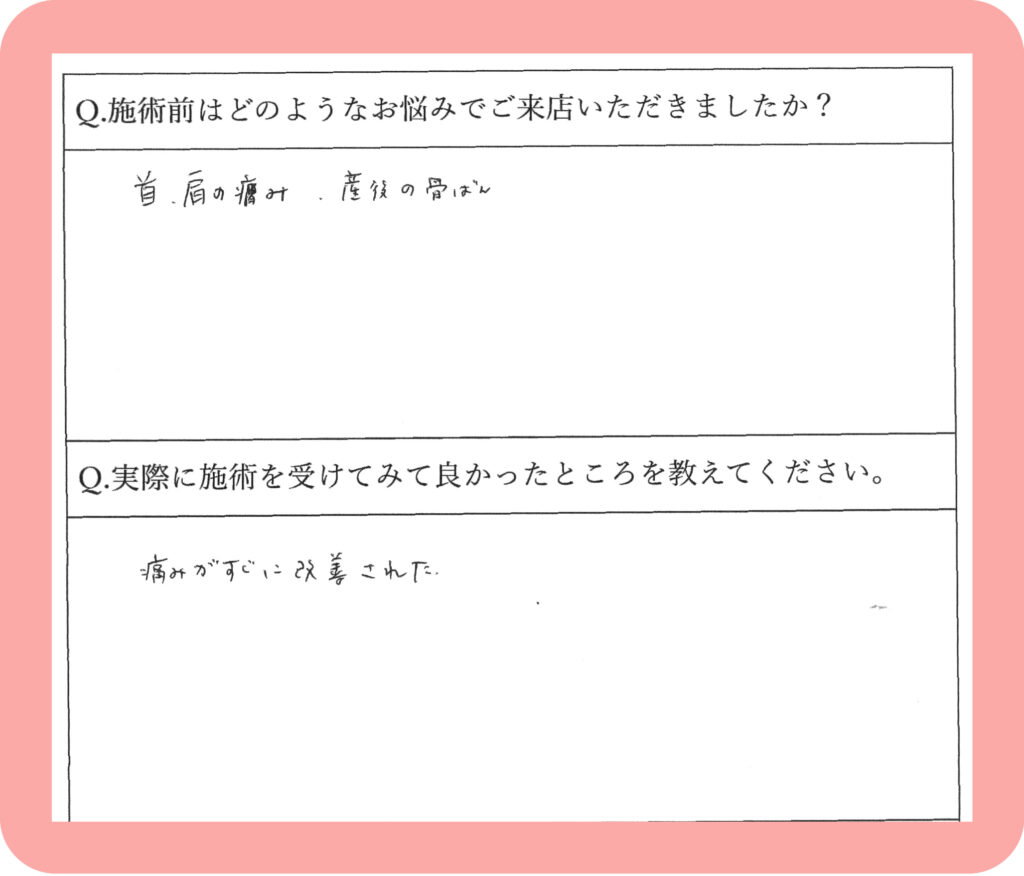 Q.施術前はどのようなお悩みでご来店いただきましたか？
首、肩の痛み 、産後の骨ばん
Q.実際に施術を受けてみて良かったところを教えてください。
痛みがすぐに改善された。